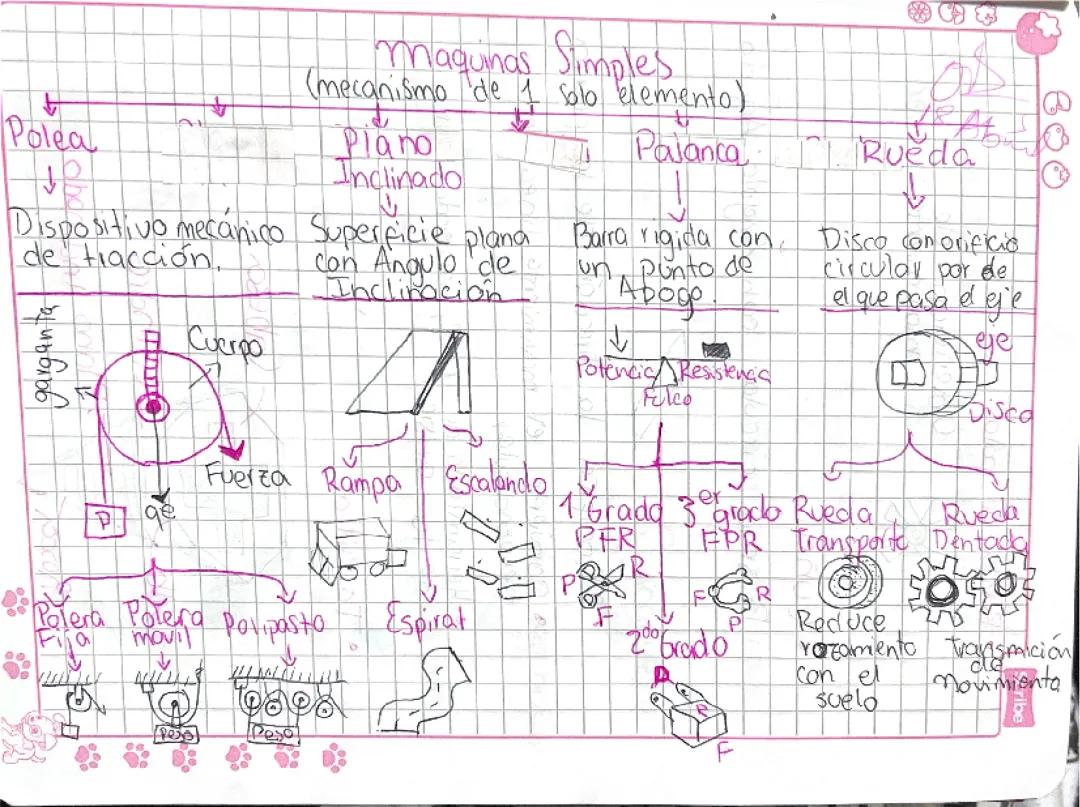 Maquinas Simples
(mecanismo de 1 solo elemento)
Polea
Dispositivo mecánico
de tracción.
garganta
Cuerpo
Fuerza
P
eje
Polera
Fija
Polera
movil
Peso
Polipasto
Peso
Plano
Inclinado
Superficie plana
con Angulo de
Inclinación
Rampa
Escalando
Espiral
Palanca
Barra rigida con
un punto de
Apogo.
Potencia
Resistencia
Fulco
1 Grado
PFR
P
R
F
2do Grado
P
R
F
3er grado
FPR
F
R
P
Rueda
Disco con orificio
circular por de
el que pasa el eje
eje
Disco
Rueda
Transporte
Reduce
rozamiento
con el
suelo
Rueda
Dentada
Transmición
de
Movimienta
ribe